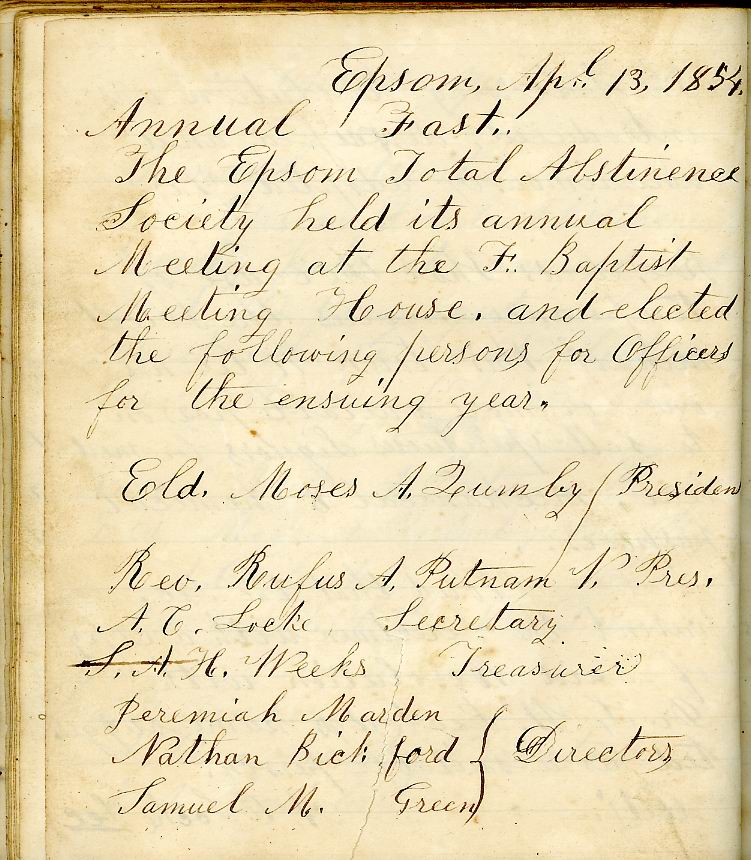 Epsom, Apl. 13, 1854.
Annual Fast.
The Epsom Total Abstinence
Society held its annual
Meeting at the F. Baptist
Meeting House. and elected
the following persons for Officers
for the ensuing year.
Eld. Moses A. Quimby ( Presiden
Rev. Rufus A. Putnam V. Pres.
A. C. Locke Secretary
S. A. H. Weeks Treasurer
Jeremiah Marden
Nathan Bickford } Directors
Samuel M. Green